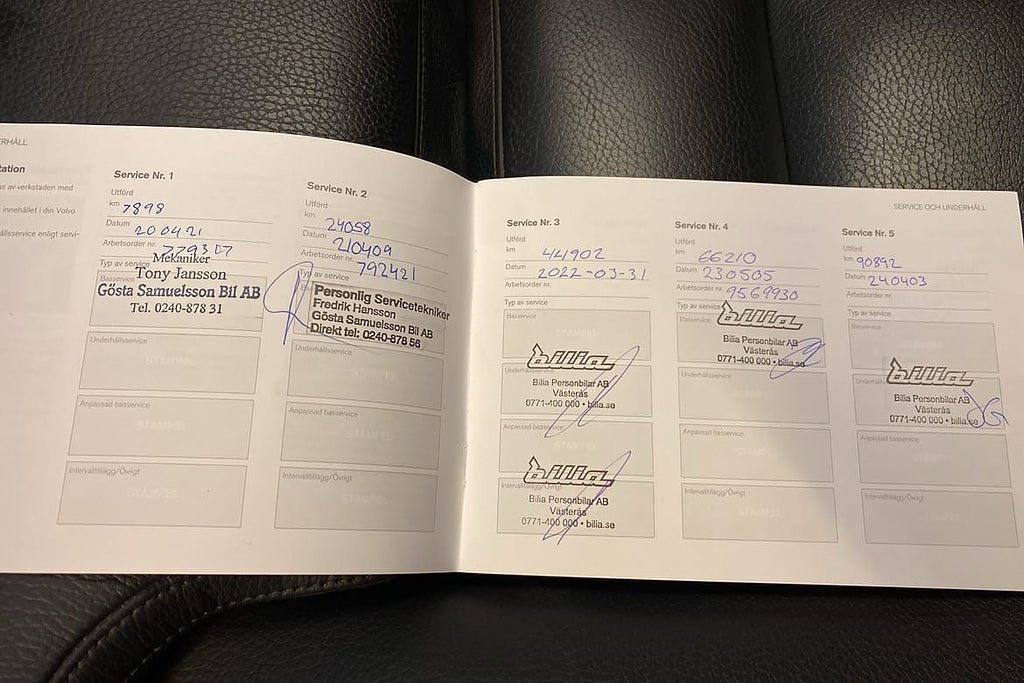 ERHÅLL
tation
as av verkstaden med
innehållet i din Volvo
ållsservice enligt servi-
Service Nr. 1
Utförd
km 7898
Datum 200421
Arbetsorder nr.
Mekaniker
Typ av service
Tony Jansson
Gösta Samuelsson Bil AB
Tel. 0240-878 31
Underhållsservice
STÄMPEL
Anpassad basservice
STÄMPEL
Intervalltillägg/Övrigt
STÄMPEL
Service Nr. 2
Utförd
km 24058
Datum 210409
Arbetsorder nr. 792421
Typ av service
Personlig Servicetekniker
Fredrik Hansson
Gösta Samuelsson Bil AB
Direkt tel: 0240-878 56
Underhållsservice
STÄMPEL
Anpassad basservice
STÄMPEL
Intervalltillägg/Övrigt
STÄMPEL
Service Nr. 3
Utförd
km 44902
Datum 2022-03-31
Arbetsorder nr.
Typ av service
Basservice
STÄMPEL
bilia
Underhållsservice
Bilia Personbilar AB
Västerås
0771-400 000 • bilia.se
Anpassad basservice
STÄMPEL
bilia
Intervalltillägg/Övrigt
Bilia Personbilar AB
Västerås
0771-400 000 • bilia.se
SERVICE OCH UNDERHÅLL
Service Nr. 4
Utförd
km 66210
Datum 230505
Arbetsorder nr. 9569930
Typ av service
bilia
Basservice
Bilia Personbilar AB
Västerås
0771-400 000 • bilia.se
Underhållsservice
STÄMPEL
Anpassad basservice
STÄMPEL
Intervalltillägg/Övrigt
STÄMPEL
Service Nr. 5
Utförd
km 90892
Datum 240403
Arbetsorder nr.
Typ av service
Basservice
STÄMPEL
bilia
Underhållsservice
Bilia Personbilar AB
Västerås
0771-400 000 • bilia.se
Anpassad basservice
STÄMPEL
Intervalltillägg/Övrigt
STÄMPEL